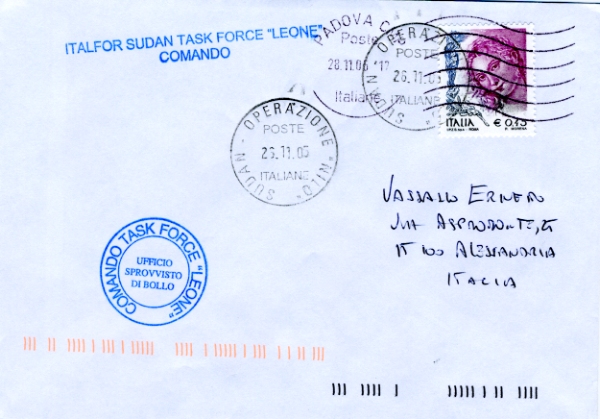 ITALFOR SUDAN TASK FORCE "LEONE"
COMANDO
PADOVA C
Poste
28.11.05
Italiane
OPERAZIONE
POSTE
26.11.05
ITALIANE
SUDAN
ITALIA € 0,45
OPERAZIONE "NILO"
POSTE
26.11.05
ITALIANE
SUDAN
VASSALLO ERNESTO
VIA ASPROMONTE,
15100 ALESSANDRIA
ITALIA
COMANDO TASK FORCE "LEONE"
UFFICIO
SPROVVISTO
DI BOLLO